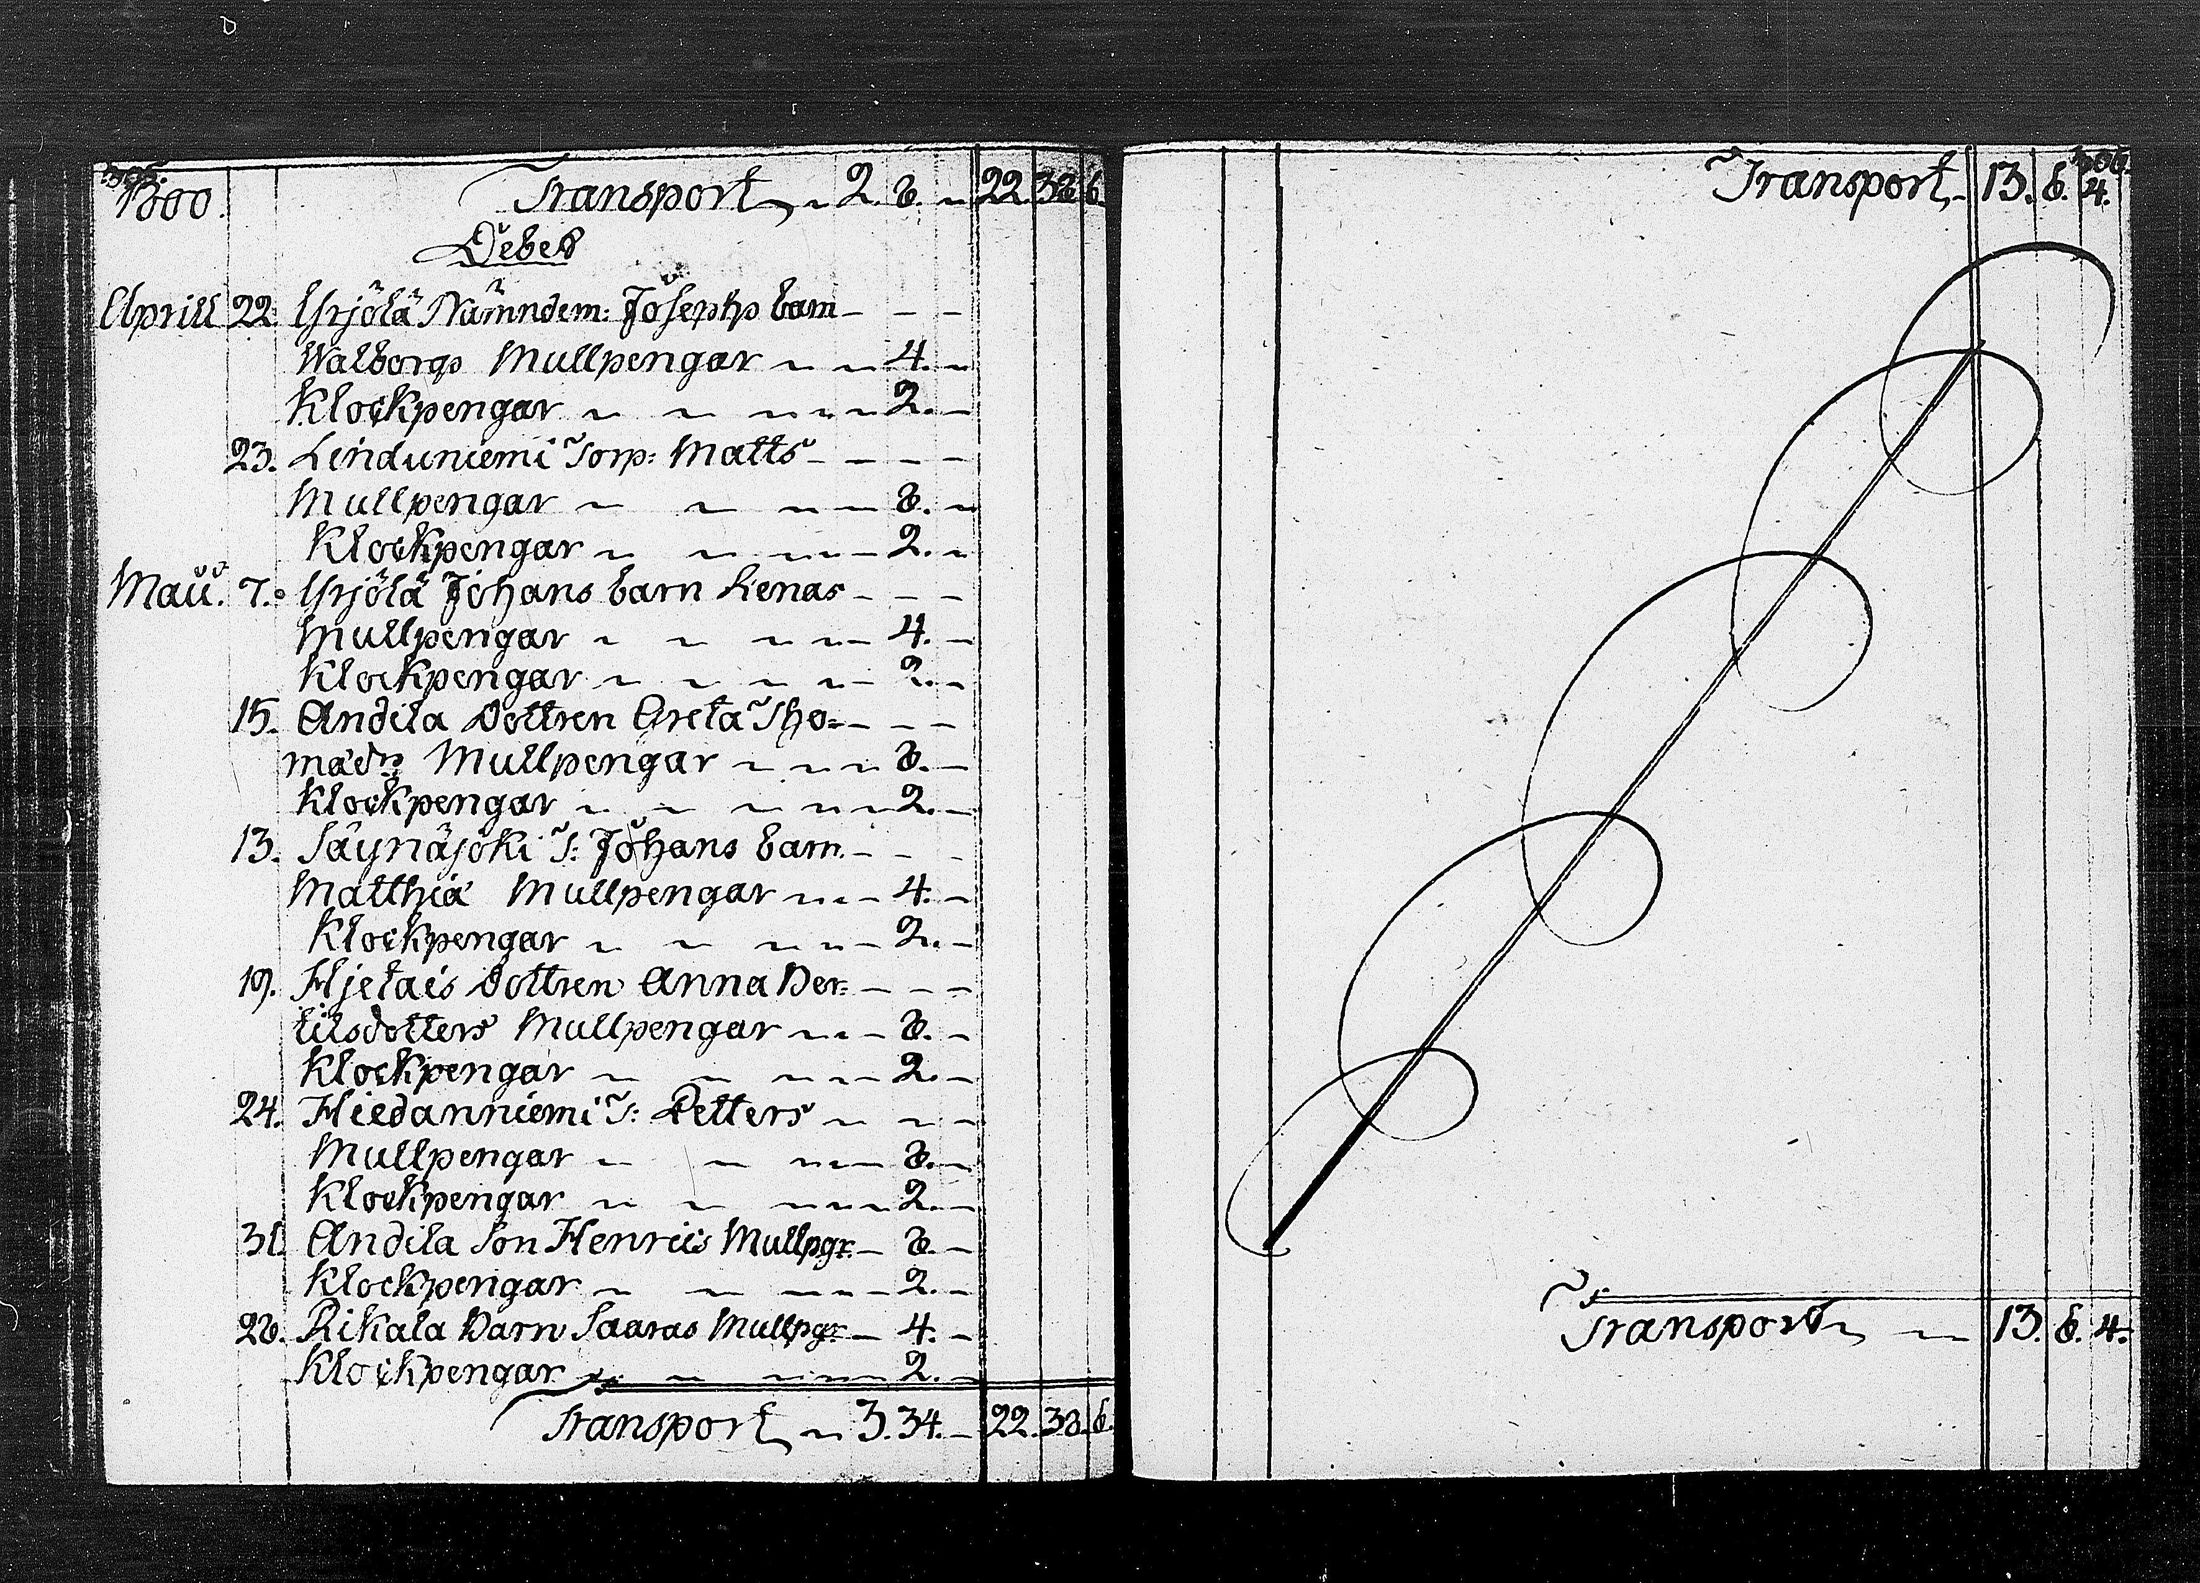 305.
1800.
Transport 2. 8. 22. 38 6.
Debet
Aprill 22. Yrjölä Nämndem: Josephs barn
Walborgs Mullpengar 4.
Klockpengar 2.
23. Linduniemi Torp: Matts
Mullpengar 8.
Klockpengar 2.
Maii. 7. Yrjölä Johans barn Lenas
Mullpengar 4.
Klockpengar 2.
15. Andila Dottren Greta Tho=
mædrs Mullpengar 8.
Klockpengar 2.
13. Säynäjoki T: Johans barn
Matthiæ Mullpengar 4.
Klockpengar 2.
19. Hjetais Dottren Anna Ber=
tilsdotters Mullpengar 8.
Klockpengar 2.
24. Hiedanniemi T: Petters
Mullpengar 8.
Klockpengar 2.
31. Andila Son Henriis Mullpgr 8.
Klockpengar 2.
28. Rikala Barn Saaras Mullpgr 4.
Klockpengar 2.
Transport 3. 34. 22. 38. 6.
306.
Transport 13. 8. 4.
Transport 13. 8. 4.